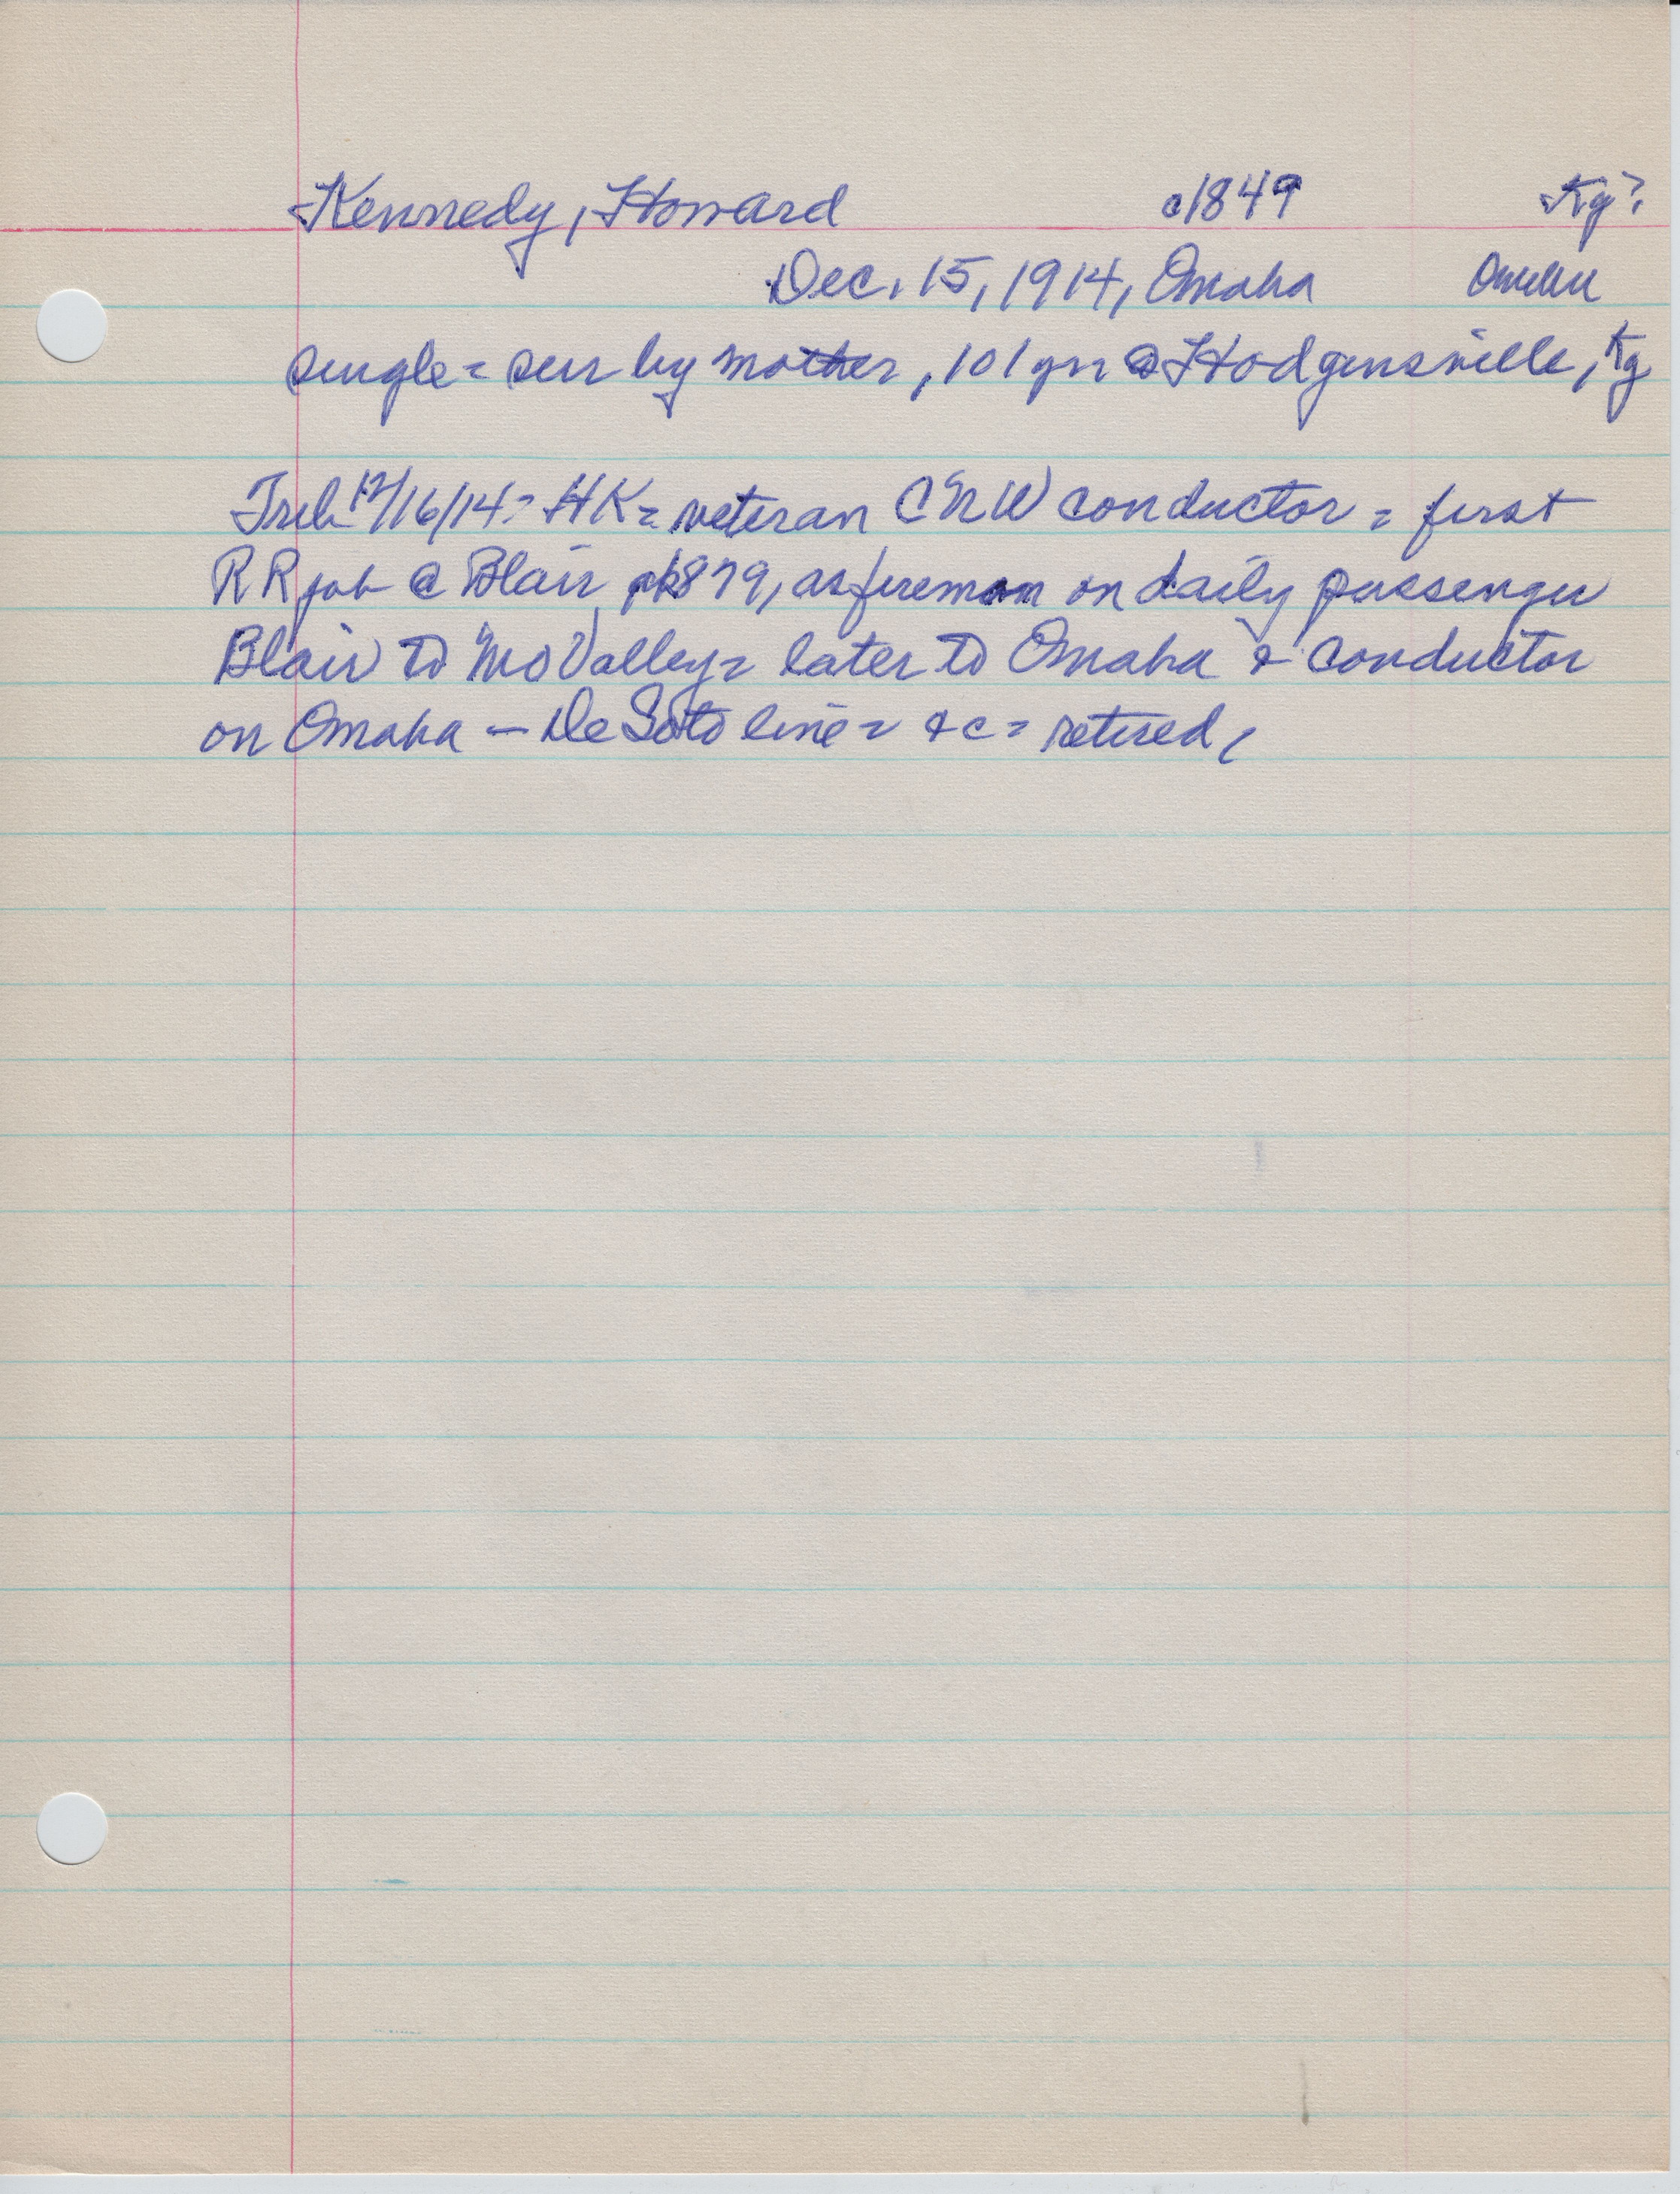 Kennedy, Howard c1849 Ky?
Dec. 15, 1914, Omaha Omaha
single = surv by mother, 101 yrs @ Hodgensville, Ky
Trib 12/16/14 = HK = veteran CNW conductor = first
RR job @ Blair, 1879, as fireman on daily passenger
Blair to Mo Valley = later to Omaha & conductor
on Omaha - De Soto line = &c = retired,